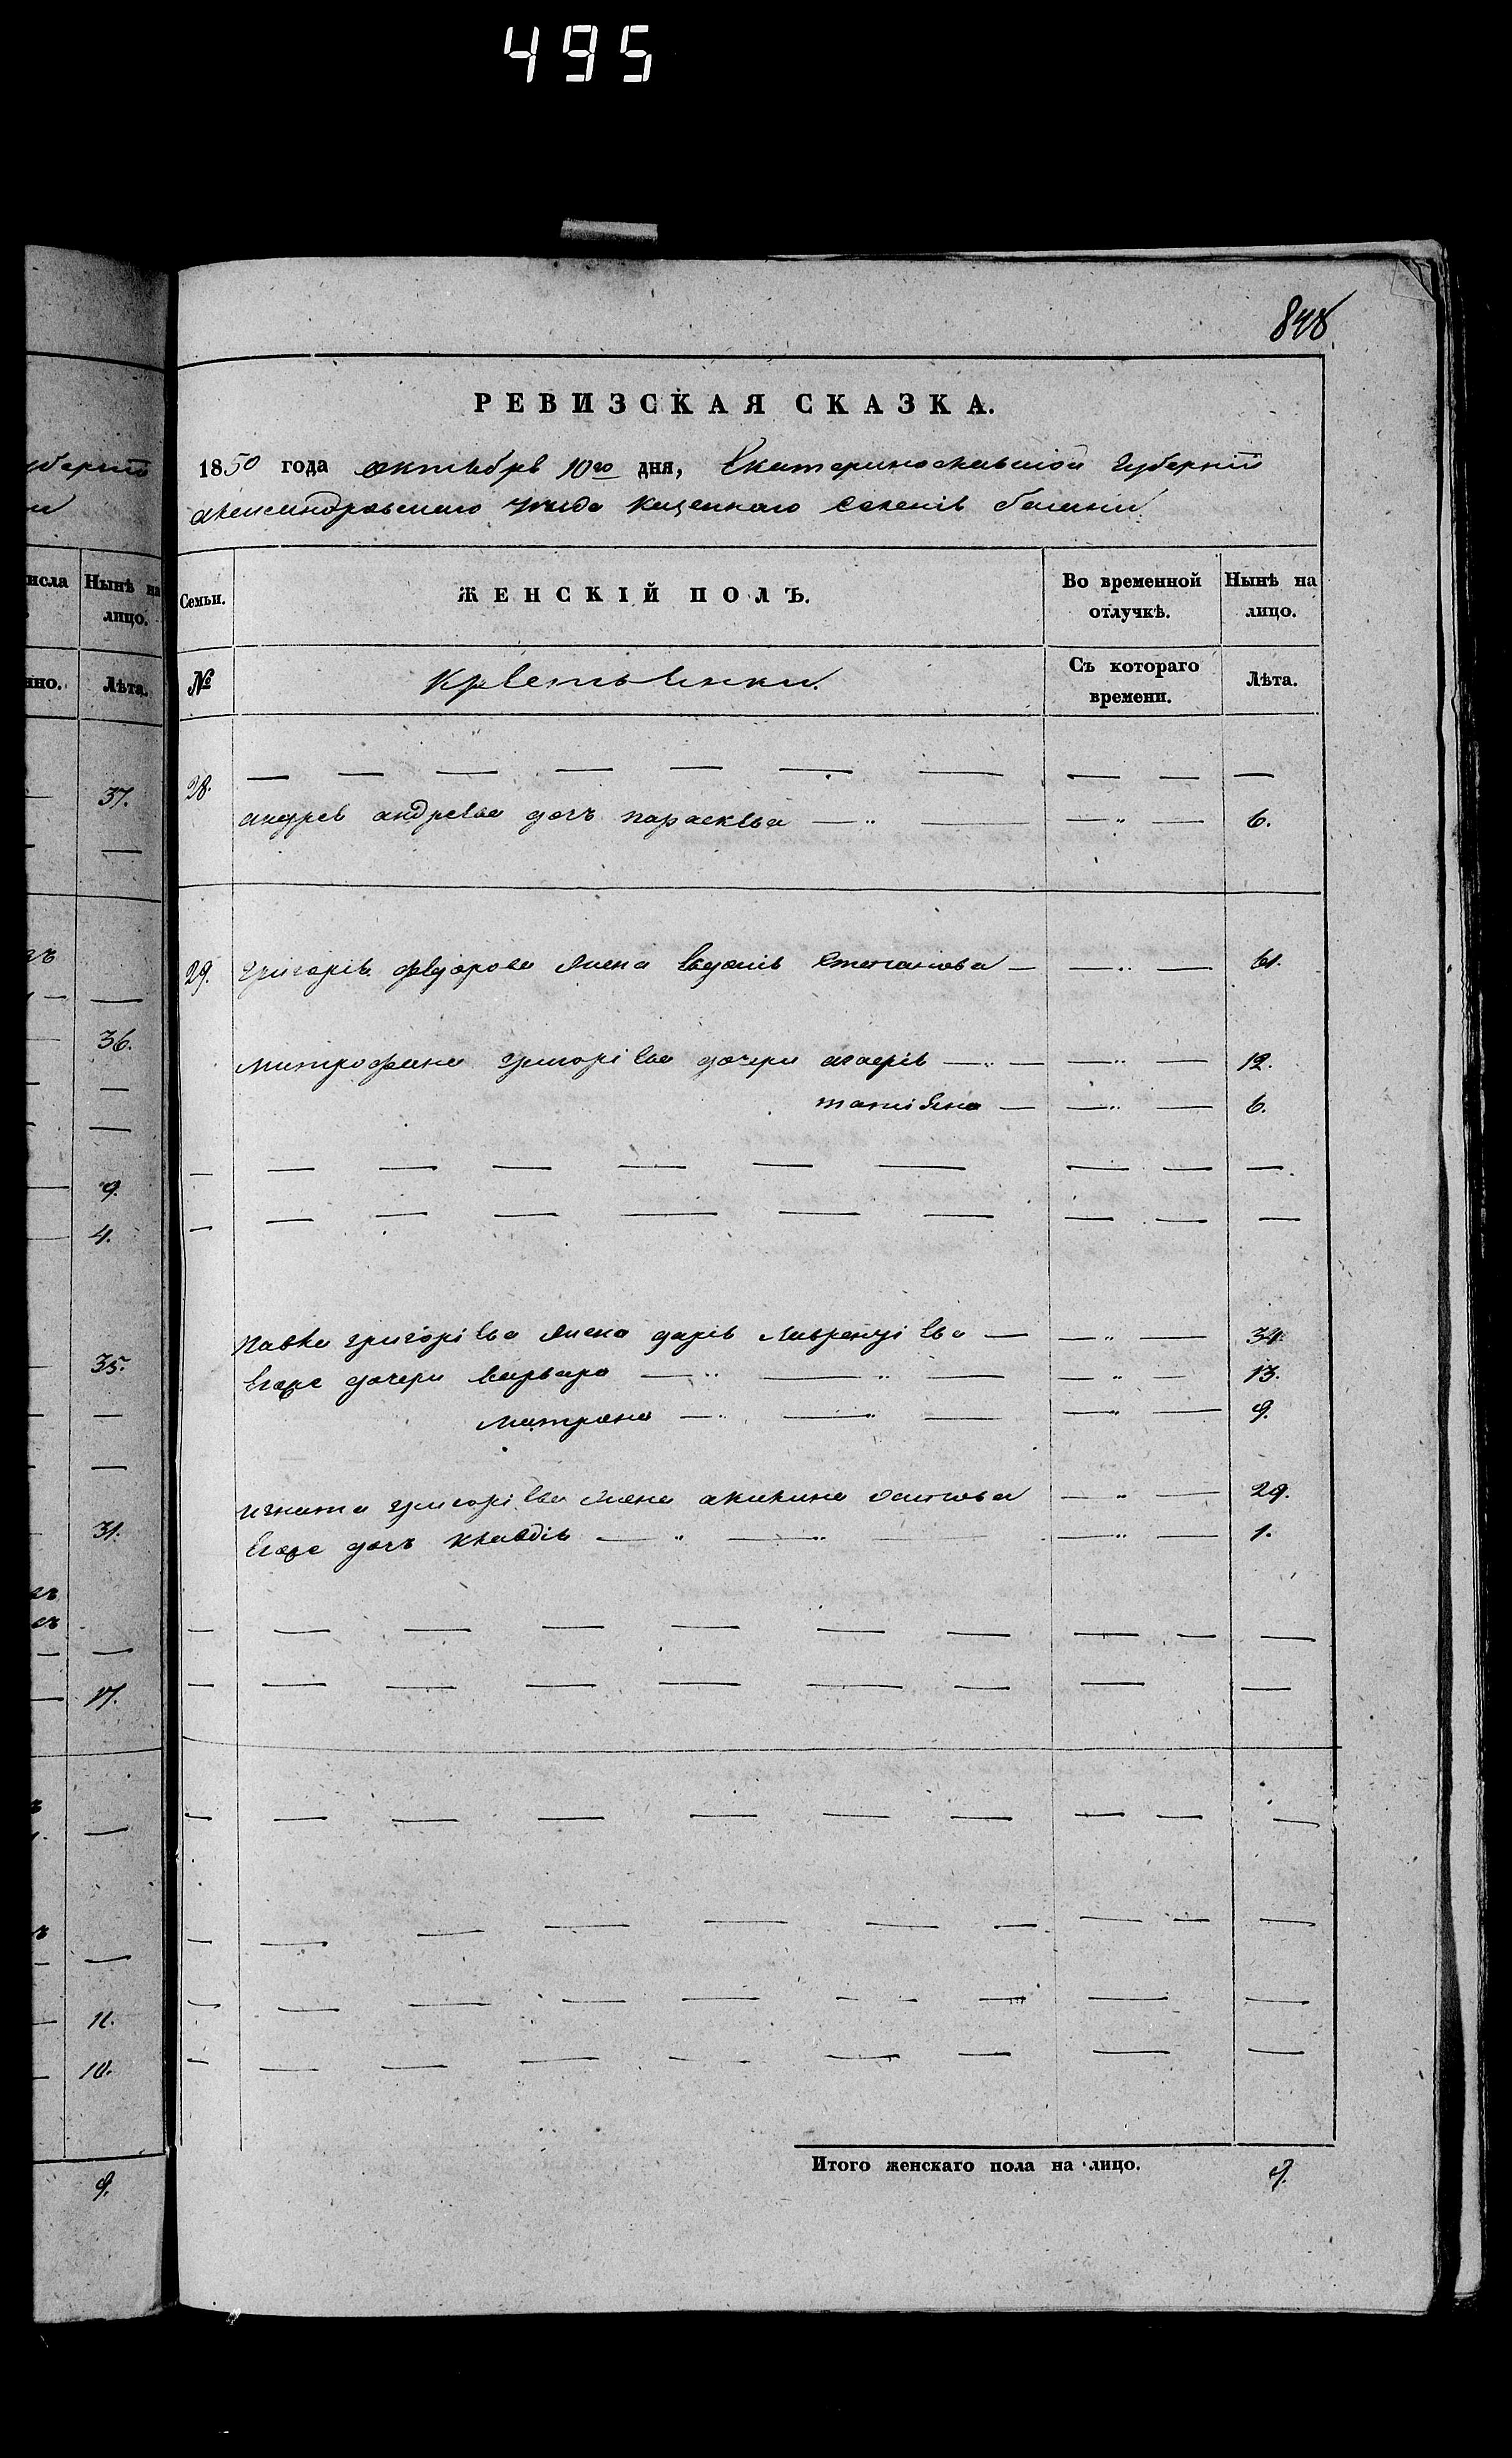 495
848
РЕВИЗСКАЯ СКАЗКА.
1850 года октября 10го дня, Екатеринославской губернии
александровского уезда казенного селения
Семьи. ЖЕНСКІЙ ПОЛЪ. Во временной отлучкѣ. Нынѣ на лицо.
№ крестьянки. Съ котораго времени. Лѣта.
28. — — — — — — — — — —
андрея андреева дочь параскева — „ — — „ — 6.
29. григория федорова жена евдокия степанова — — „ — 61.
митрофана григоріева дочери агафія — „ — — „ — 12.
татіяна — — „ — 6.
— — — — — — — — — —
— — — — — — — — — —
павла григоріева жена дарія лаврентіева — — „ — 34.
его же дочери варвара — „ — „ — — „ — 13.
матрона — „ — „ — — „ — 9.
игната григоріева жена акилина осипова — „ — 29.
его же дочь клавдія — „ — „ — — „ — 1.
— — — — — — — — — —
— — — — — — — — —
— — — — — — — — — —
— — — — — — — — — —
— — — — — — — — —
— — — — — — — — —
Итого женскаго пола на лицо. 9.
губерніи
числа Нынѣ на лицо.
Лѣта.
37.
36.
9.
4.
35.
31.
17.
11.
10.
9.